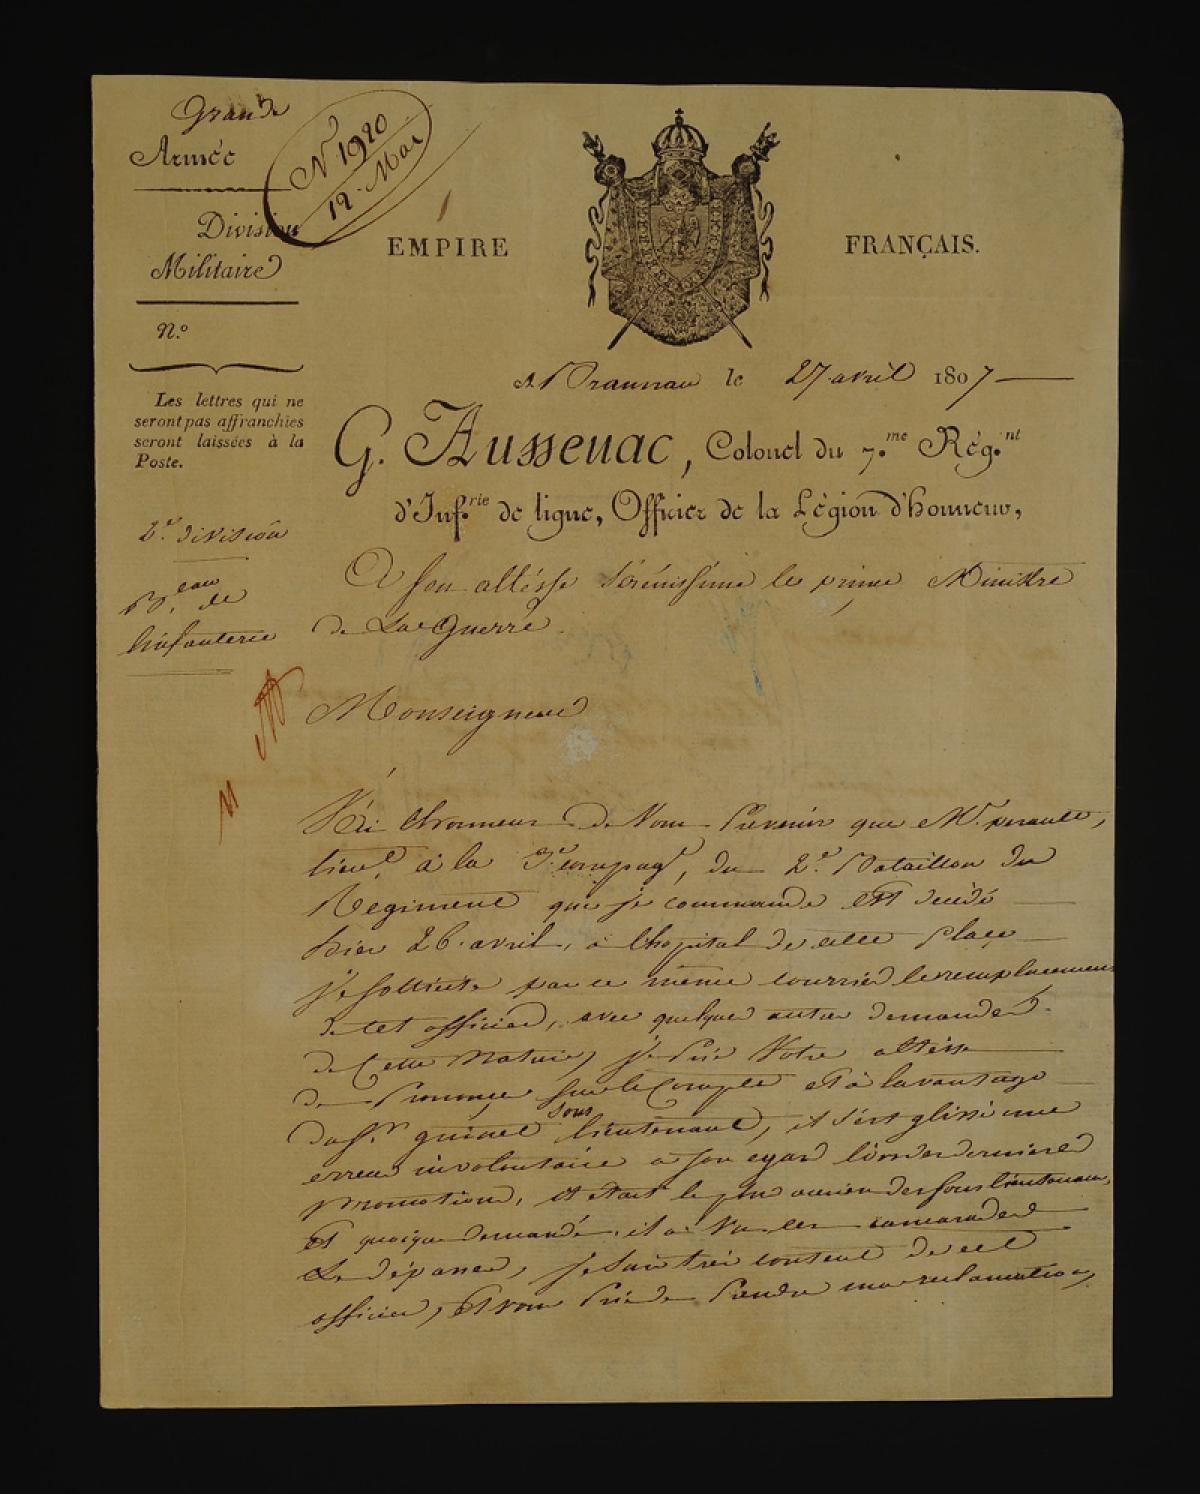 Grande
Armée
N 1920
12. Mai
Division
Militaire
N.º
EMPIRE FRANÇAIS.
Les lettres qui ne
seront pas affranchies
seront laissées à la
Poste.
A Braunau le 27 avril 1807
G. Aussenac, Colonel du 7.me Rég.nt
d'Inf.rie de ligne, Officier de la Légion d'honneur,
2.e division
B.eau de
linfanterie
A Son altesse Sérénissime le prince Ministre
de La Guerre
Monseigneur
J'ai l'honneur de Vous Prevenir que Mr.
lieut. à la 3e compag.e, du 2.e Bataillon du
Regiment que je commande est décédé
hier 26 avril, a lhopital de cette place
je sollicite par ce même courrier le remplacement
de cet officier, avec quelques autres demandes
de Cette Nature, je Prie Votre altesse
de Prononcer sur le Compte et à lavantage
du Sr. guinet sous lieutenant, il s'est glissé une
erreur involontaire a son egard lors de derniere
promotion, il etait le plus ancien des sous lieutenans,
et quoique demandé, il a Vu les camarades
Le dépasser, je suis très content de cet
officier, et vous Prie de Prendre ma reclamation